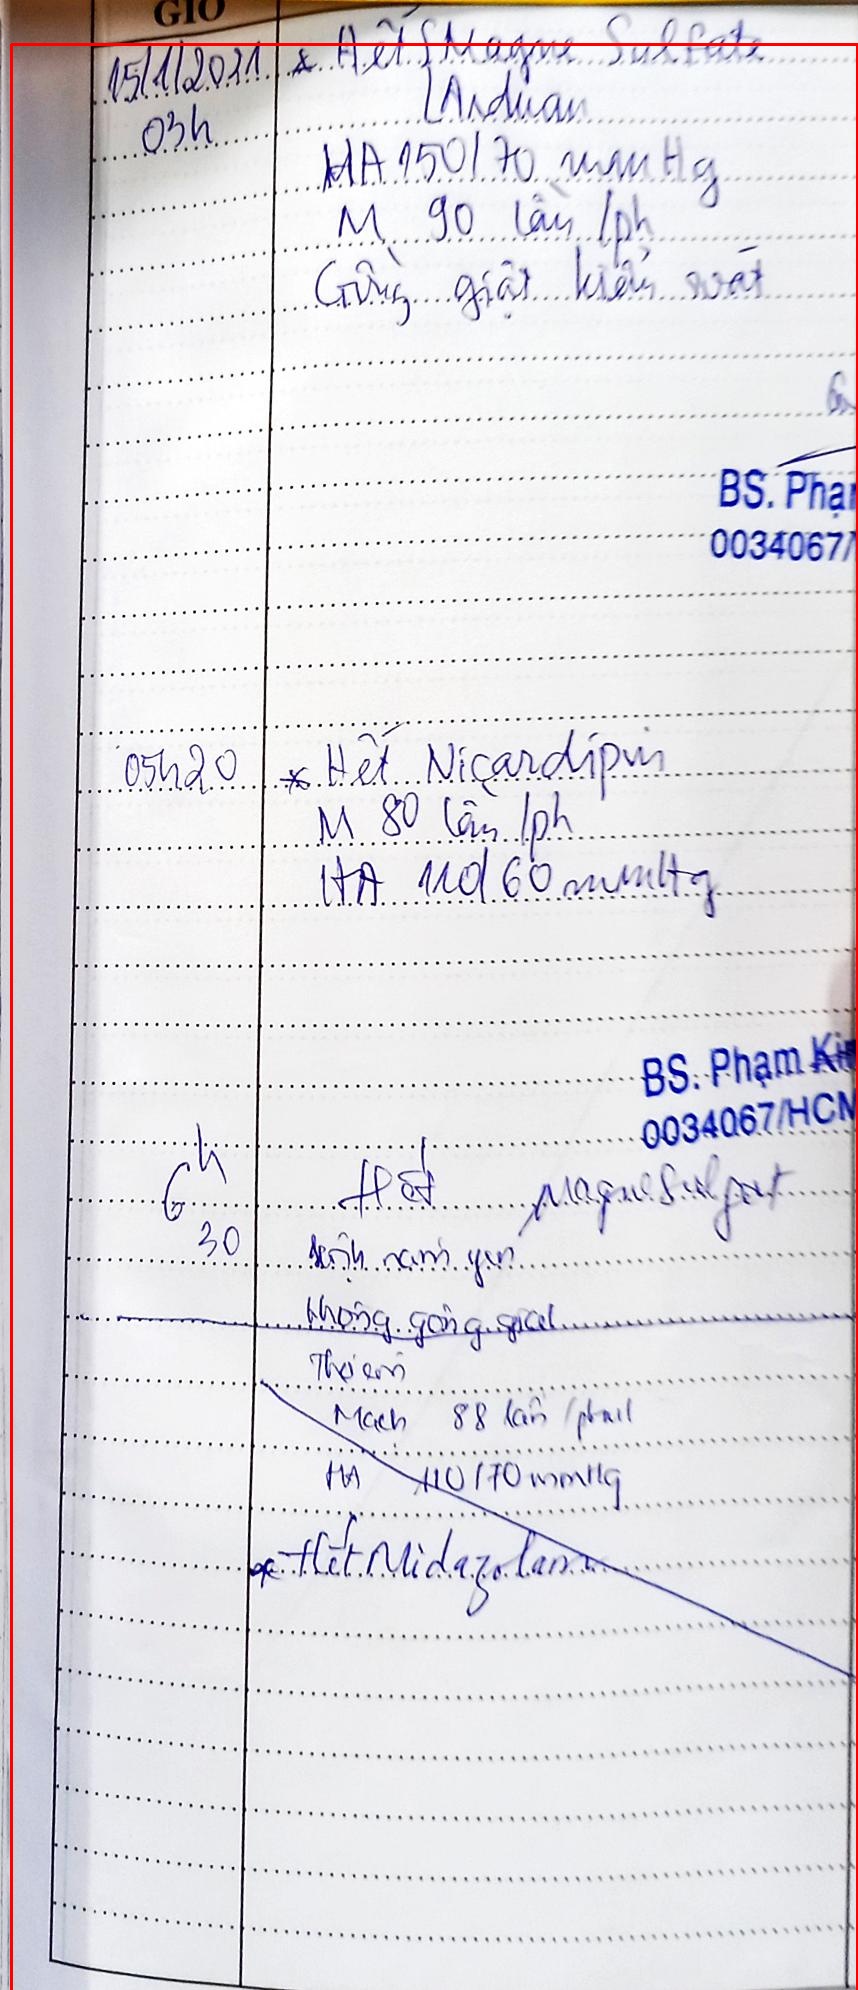 GIỜ
15/1/2021 * Hết { Magne Sulfate
03h { Arduan
HA 150/70 mmHg
M 90 lần /ph
Gồng giật kiểm soát
BS. Phạ
0034067/
05h20 * Hết Nicardipin
M 80 lần /ph
HA 110/60 mmHg
BS. Phạm Kim
0034067/HCM
6h30 Hết Magne Sulfat
Bệnh nằm yên
Không gồng giật
Mạch 88 lần /phút
HA 110/70 mmHg
* Hết Midazolam